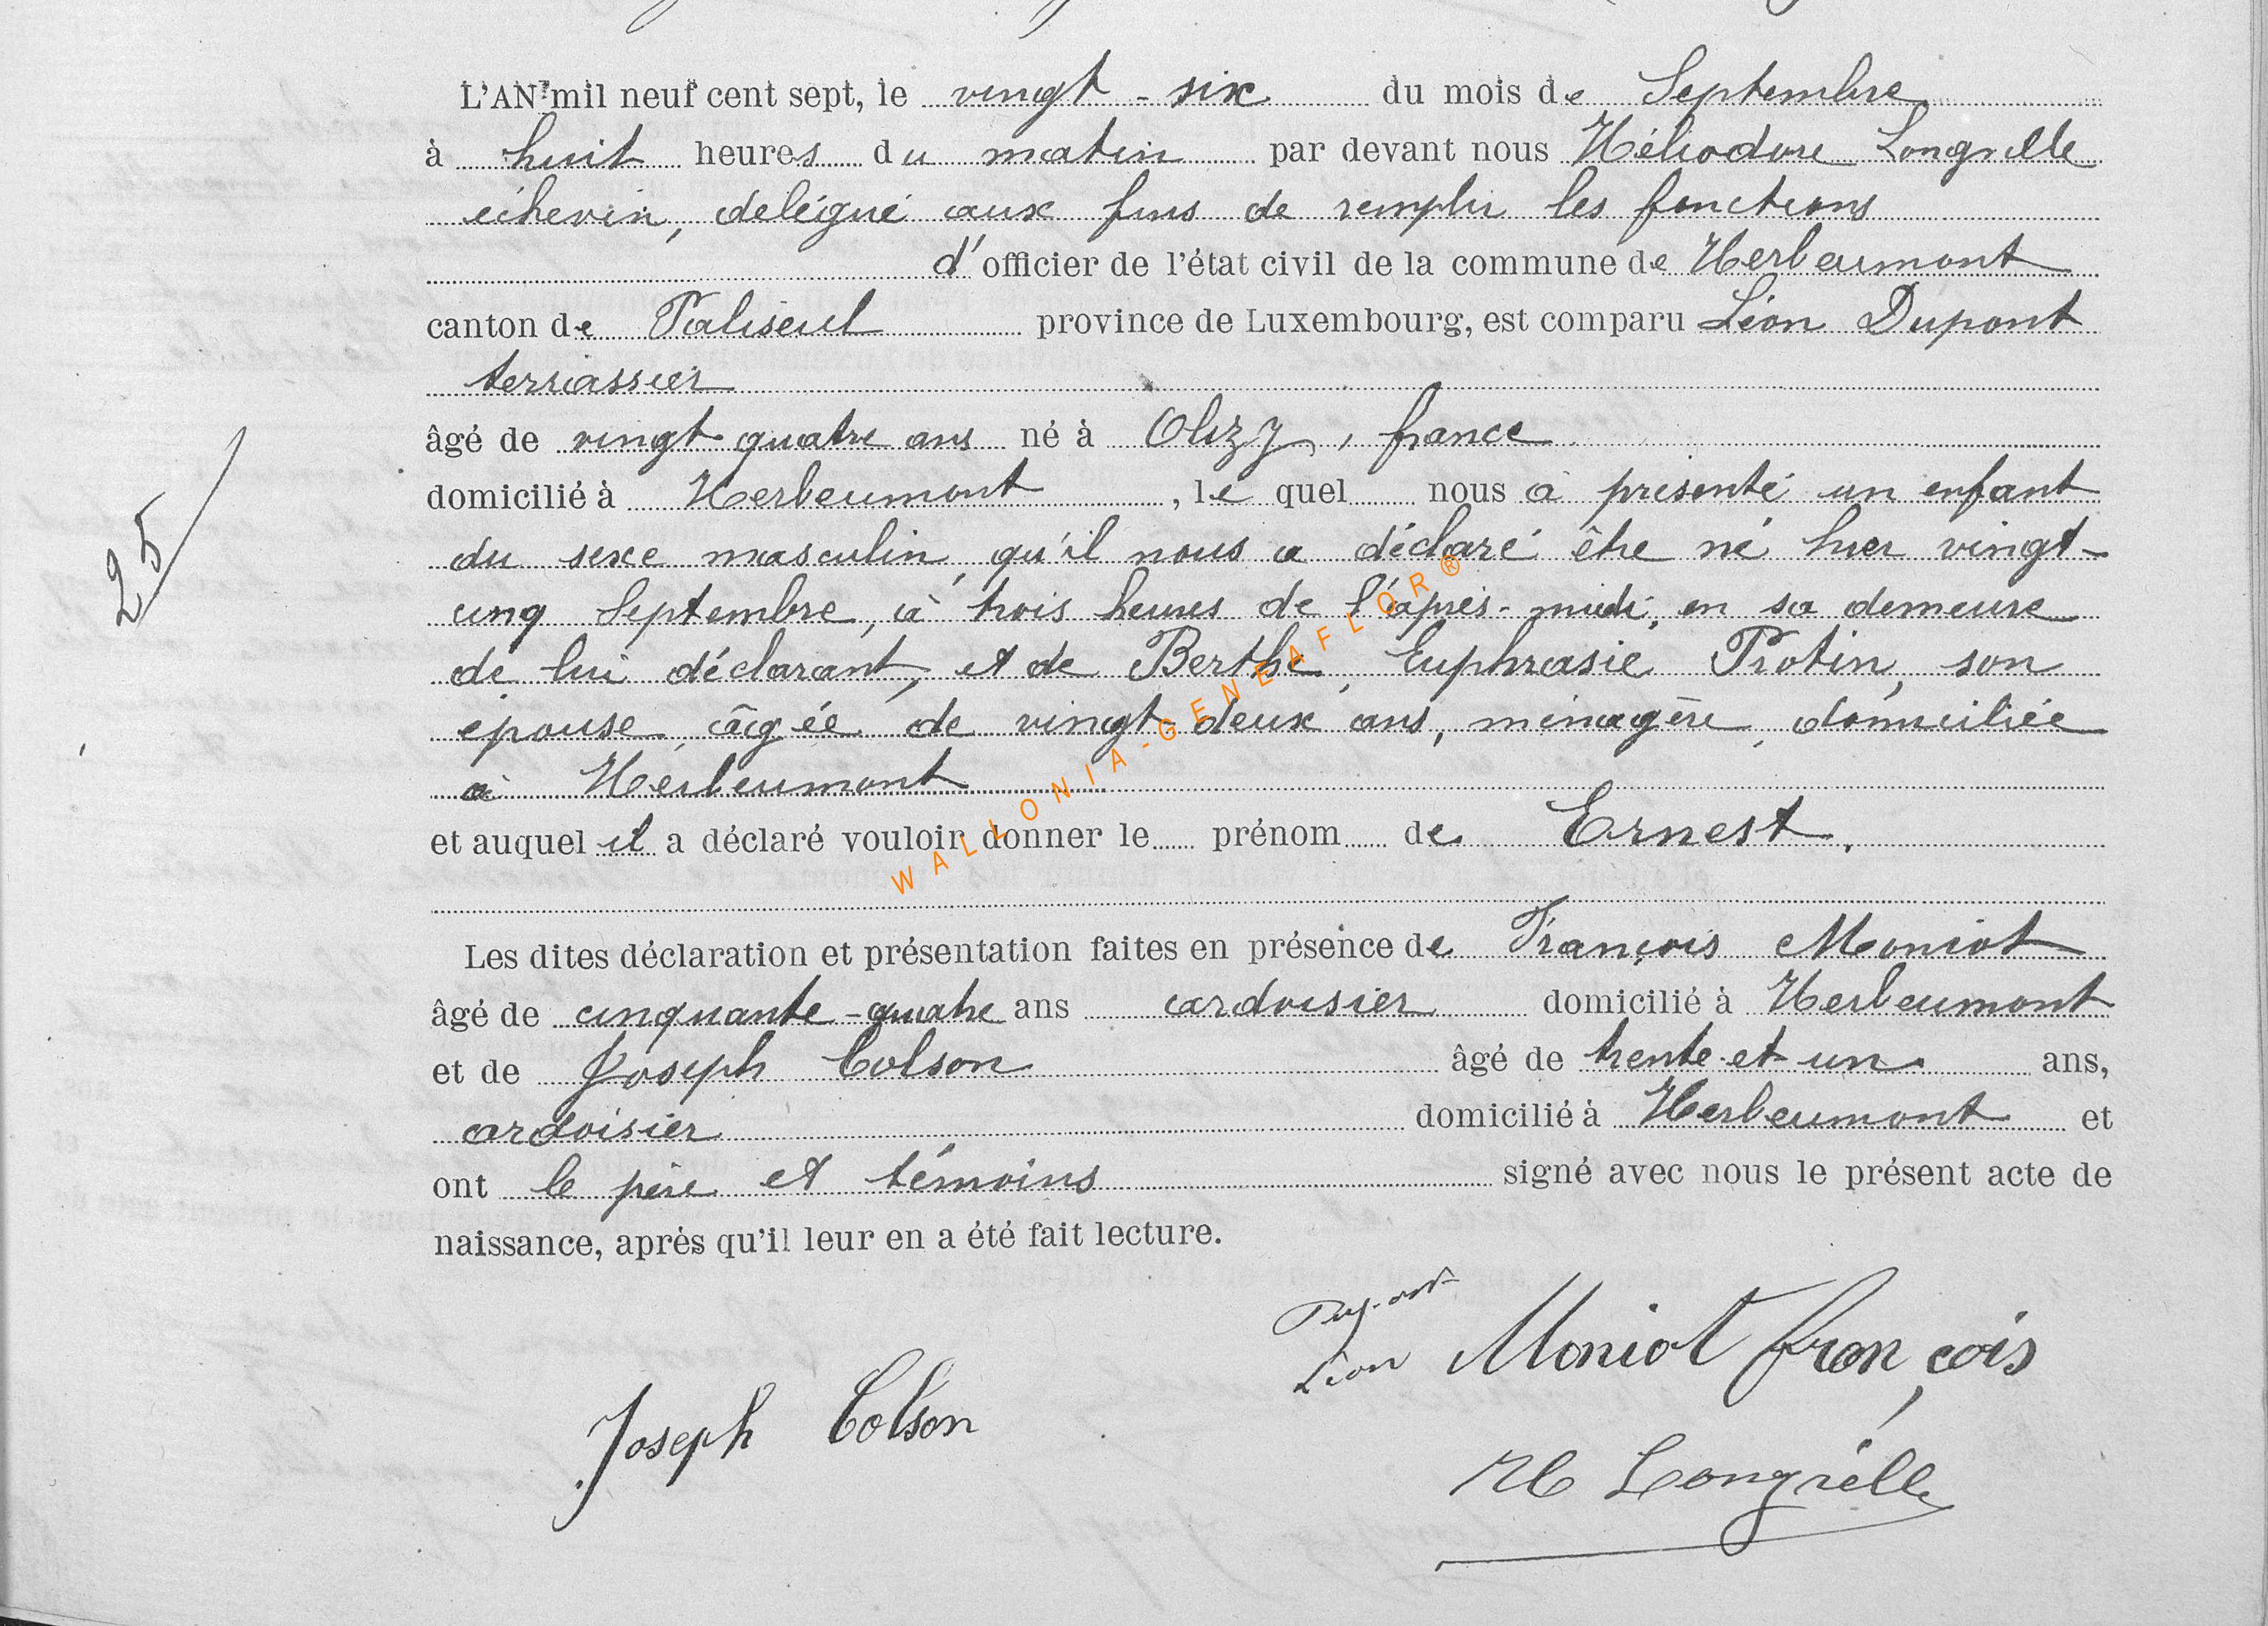 L'AN mil neuf cent sept, le vingt-six du mois de Septembre
à huit heures du matin par devant nous Héliodore Longrelle
échevin, délégué aux fins de remplir les fonctions
d'officier de l'état civil de la commune de Herbeumont
canton de Paliseul province de Luxembourg, est comparu Léon Dupont
terrassier
âgé de vingt-quatre ans né à Olizy, france
domicilié à Herbeumont, lequel nous a présenté un enfant
du sexe masculin, qu'il nous a déclaré être né hier vingt-
cinq Septembre, à trois heures de l'après-midi, en sa demeure
de lui déclarant, et de Berthe, Euphrasie Protin, son
épouse, âgée de vingt-deux ans, ménagère, domiciliée
à Herbeumont
et auquel il a déclaré vouloir donner le prénom de Ernest.
Les dites déclaration et présentation faites en présence de François Moniot
âgé de cinquante-quatre ans ardoisier domicilié à Herbeumont
et de Joseph Colson âgé de trente-et-un ans,
ardoisier domicilié à Herbeumont et
ont le père et témoins signé avec nous le présent acte de
naissance, après qu'il leur en a été fait lecture.
25
Dupont
Léon Moniot françois
Joseph Colson
H Longrelle
WALLONIA-GENEAFLOR®